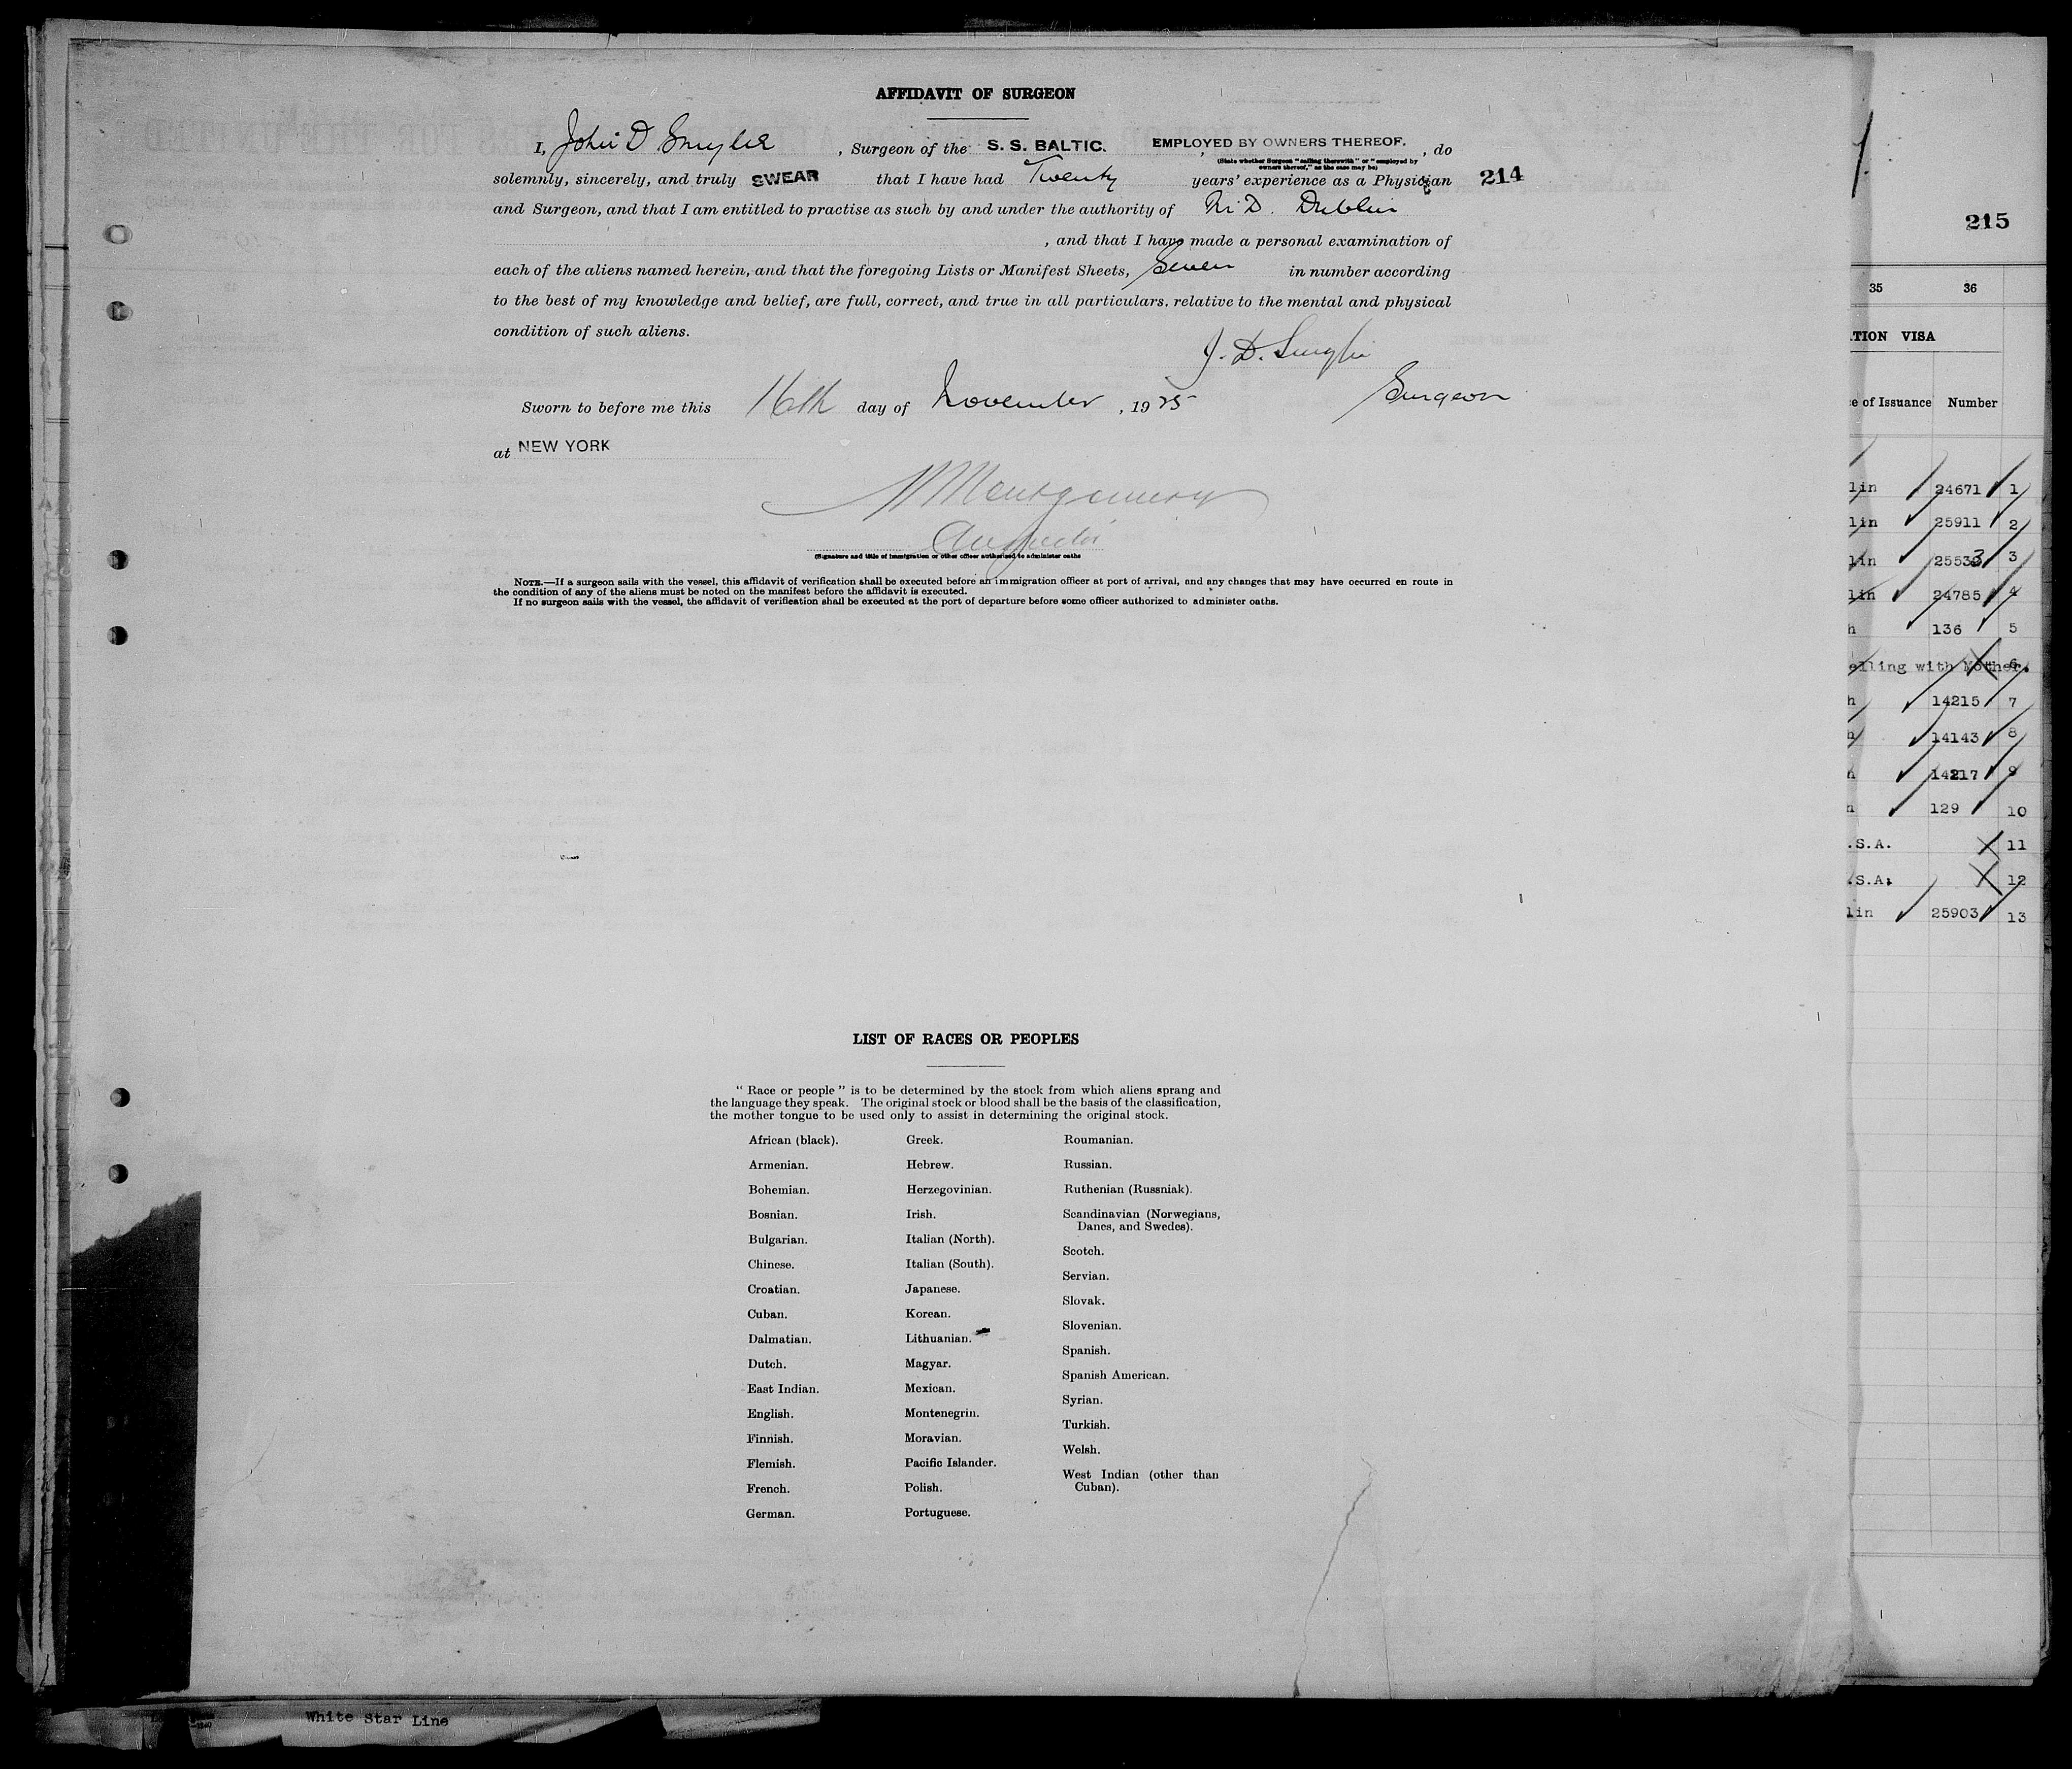 AFFIDAVIT OF SURGEON
I, John D , Surgeon of the S. S. BALTIC. , EMPLOYED BY OWNERS THEREOF. , do
(State whether Surgeon "sailing therewith" or "employed by
owners thereof," as the case may be)
solemnly, sincerely, and truly SWEAR that I have had Twenty years' experience as a Physician 214
and Surgeon, and that I am entitled to practise as such by and under the authority of Dublin
, and that I have made a personal examination of
each of the aliens named herein, and that the foregoing Lists or Manifest Sheets, Seven in number according
to the best of my knowledge and belief, are full, correct, and true in all particulars, relative to the mental and physical
condition of such aliens.
J. D.
Surgeon
Sworn to before me this 16th day of November , 1925
at NEW YORK
Montgomery
(Signature and title of immigration or other officer authorized to administer oaths
NOTE.—If a surgeon sails with the vessel, this affidavit of verification shall be executed before an immigration officer at port of arrival, and any changes that may have occurred en route in
the condition of any of the aliens must be noted on the manifest before the affidavit is executed.
If no surgeon sails with the vessel, the affidavit of verification shall be executed at the port of departure before some officer authorized to administer oaths.
LIST OF RACES OR PEOPLES
" Race or people " is to be determined by the stock from which aliens sprang and
the language they speak. The original stock or blood shall be the basis of the classification,
the mother tongue to be used only to assist in determining the original stock.
African (black).
Armenian.
Bohemian.
Bosnian.
Bulgarian.
Chinese.
Croatian.
Cuban.
Dalmatian.
Dutch.
East Indian.
English.
Finnish.
Flemish.
French.
German.
Greek.
Hebrew.
Herzegovinian.
Irish.
Italian (North).
Italian (South).
Japanese.
Korean.
Lithuanian.
Magyar.
Mexican.
Montenegrin.
Moravian.
Pacific Islander.
Polish.
Portuguese.
Roumanian.
Russian.
Ruthenian (Russniak).
Scandinavian (Norwegians,
Danes, and Swedes).
Scotch.
Servian.
Slovak.
Slovenian.
Spanish.
Spanish American.
Syrian.
Turkish.
Welsh.
West Indian (other than
Cuban).
215
35 36
TION VISA
e of Issuance Number
lin 24671 1
lin 25911 2
lin 25533 3
lin 24785 4
h 136 5
elling with Mother. 6
h 14215 7
h 14143 8
h 14217 9
h 129 10
.S.A. 11
.S.A. 12
lin 25903 13
White Star Line